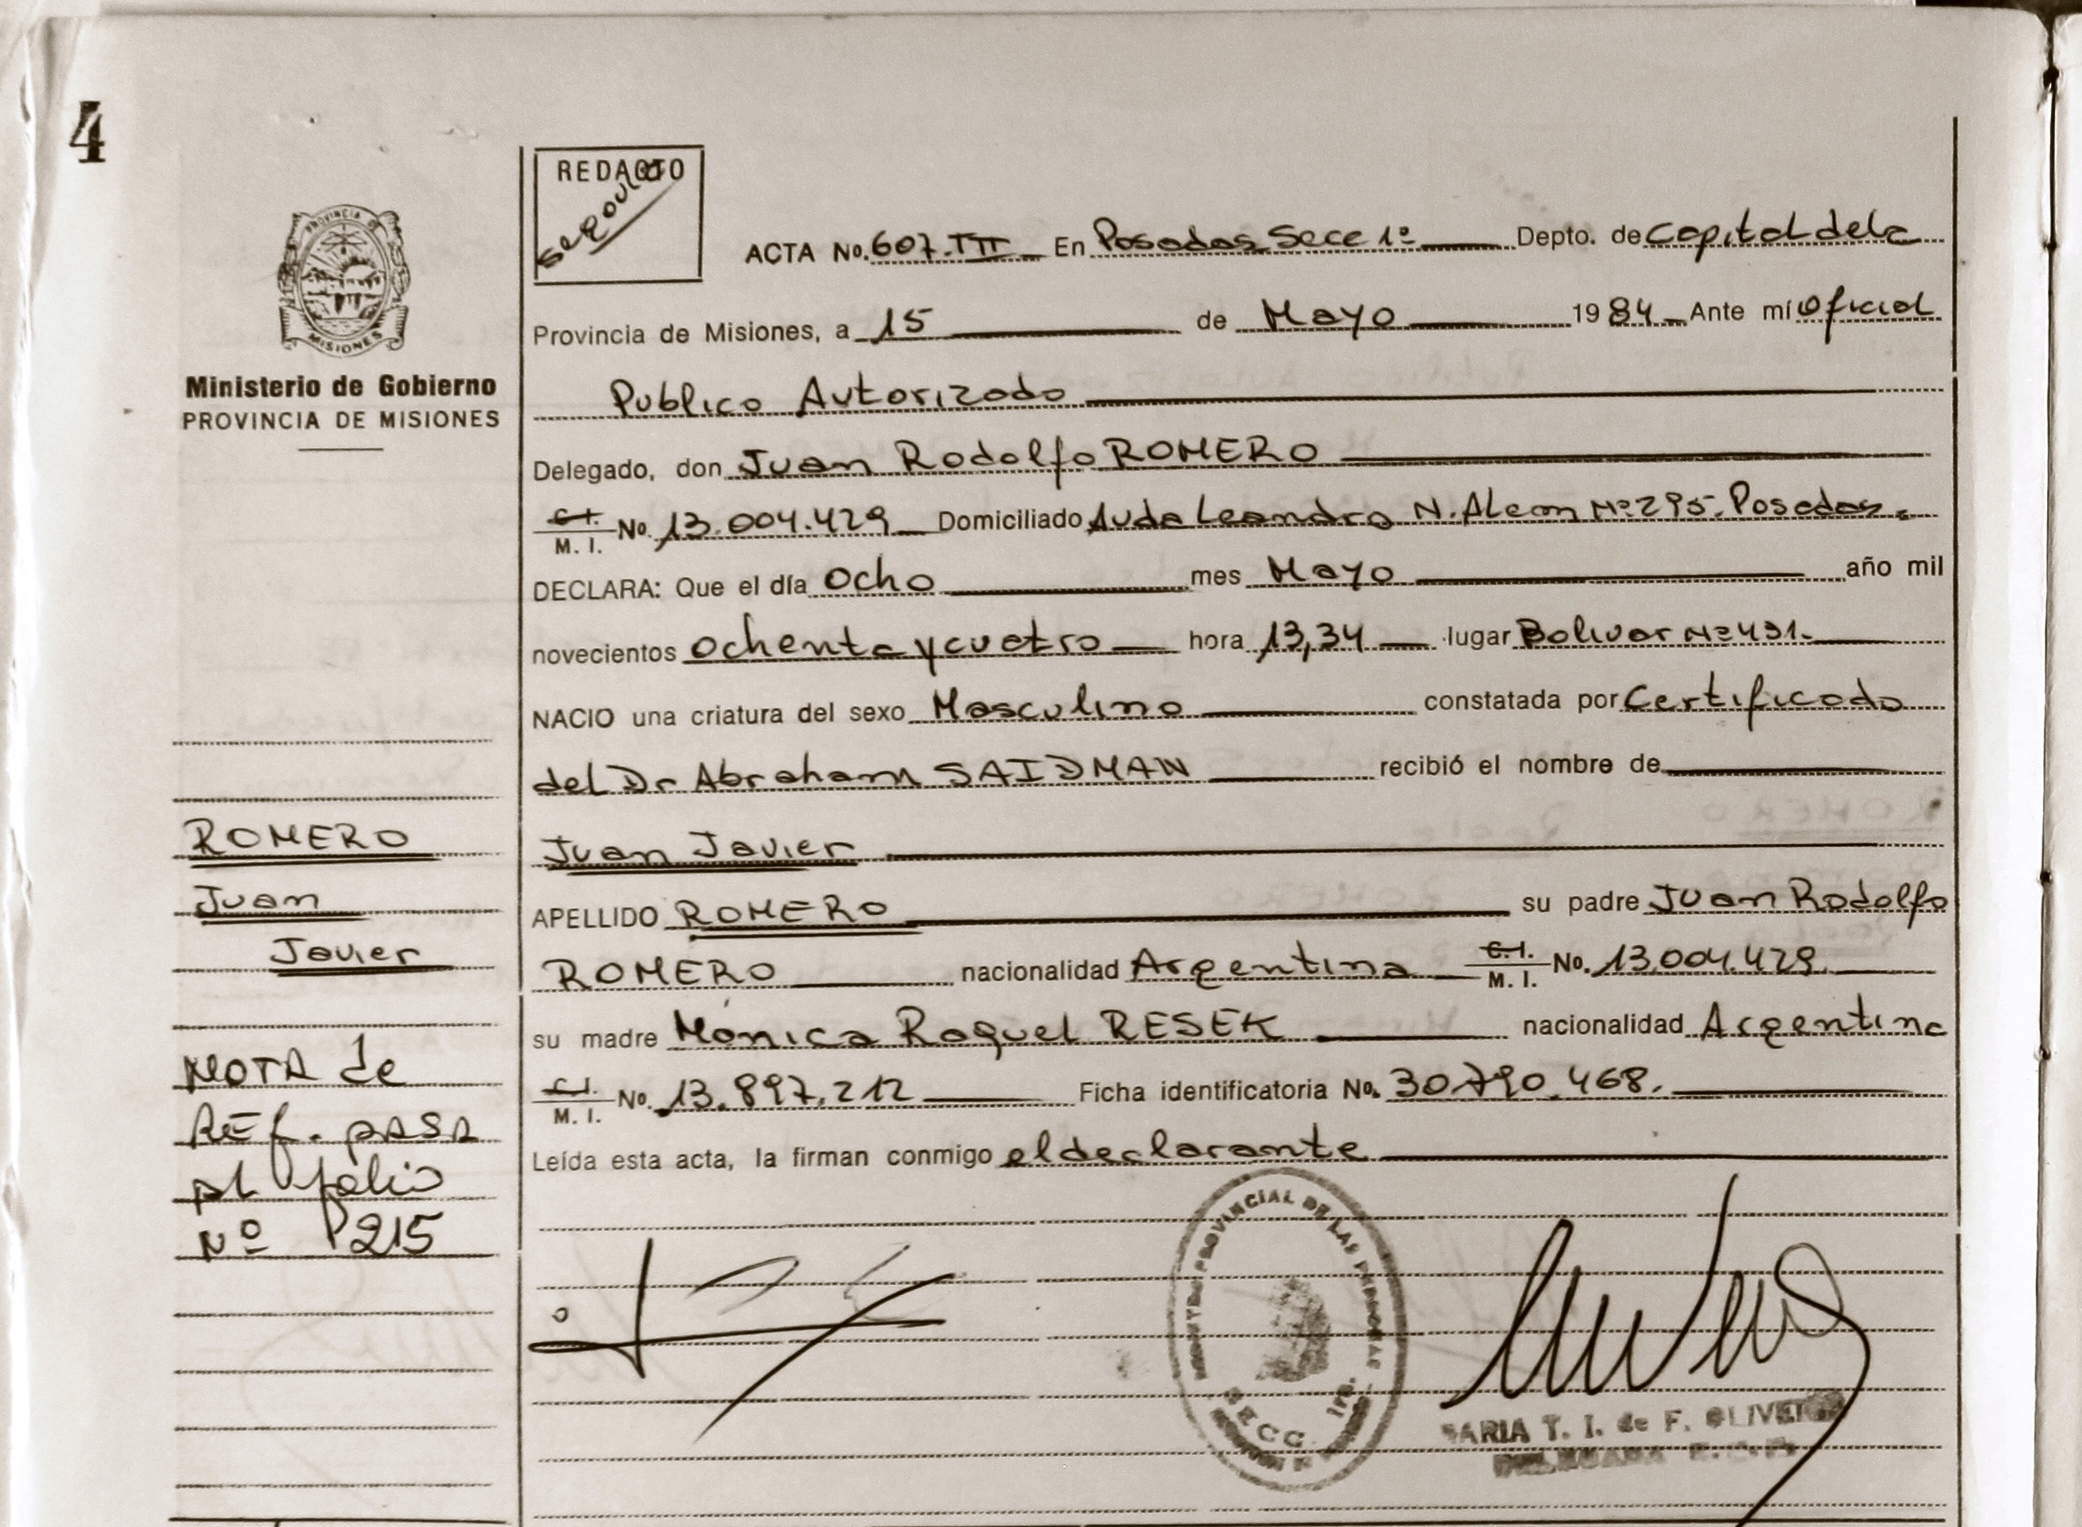 4
PROVINCIA DE
MISIONES
Ministerio de Gobierno
PROVINCIA DE MISIONES
REDACTO
ACTA No. 607. TIII En Posadas Secc 1º Depto. de Capital dela
Provincia de Misiones, a 15 de Mayo 1984 Ante mí Oficial
Publico Autorizado
Delegado, don Juan Rodolfo ROMERO
C. I. M. I. No. 13.004.429 Domiciliado Avda Leandro N. Alem Nº 295. Posadas.
DECLARA: Que el día Ocho mes Mayo año mil
novecientos Ochenta y cuatro hora 13,34 lugar Bolivar Nº 431.
NACIO una criatura del sexo Masculino constatada por Certificado
del Dr Abraham SAIDMAN recibió el nombre de
Juan Javier
APELLIDO ROMERO su padre Juan Rodolfo
ROMERO nacionalidad Argentina C. I. M. I. No. 13.004.429
su madre Mónica Raquel RESEK nacionalidad Argentina
C. I. M. I. No. 13.897.212 Ficha identificatoria No. 30.790.468.
Leída esta acta, la firman conmigo el declarante
ROMERO
Juan
Javier
NOTA de
REf. pASA
Al folio
Nº 215
REGISTRO PROVINCIAL DE LAS PERSONAS
SECC. 1ra.
MARIA T. I. de F. OLIVEIRA